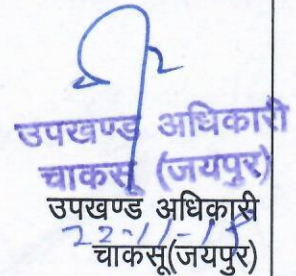 उपखण्ड अधिकारी
चाकसू (जयपुर)
उपखण्ड अधिकारी
चाकसू(जयपुर)